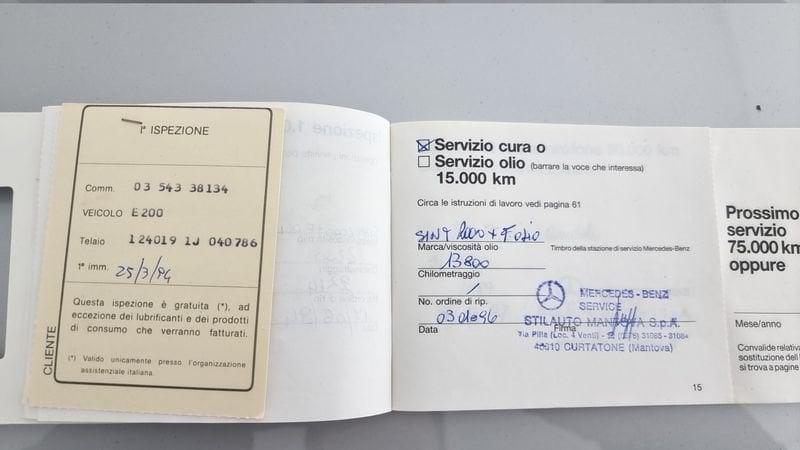 1ª ISPEZIONE
Comm. 03 543 38134
VEICOLO E200
Telaio 124019 1J 040786
1ª imm. 25/3/94
Questa ispezione è gratuita (*), ad
eccezione dei lubrificanti e dei prodotti
di consumo che verranno fatturati.
(*) Valido unicamente presso l'organizzazione
assistenziale italiana.
CLIENTE
Servizio cura o
Servizio olio (barrare la voce che interessa)
15.000 km
Circa le istruzioni di lavoro vedi pagina 61
Marca/viscosità olio
Timbro della stazione di servizio Mercedes-Benz
13800
Chilometraggio
No. ordine di rip.
Data
Firma
MERCEDES-BENZ
SERVICE
STILAUTO MANTOVA S.p.A.
46010 CURTATONE (Mantova)
15
Prossimo
servizio
75.000 km
oppure
Mese/anno
Convalide relativa
sostituzione del
si trova a pagine